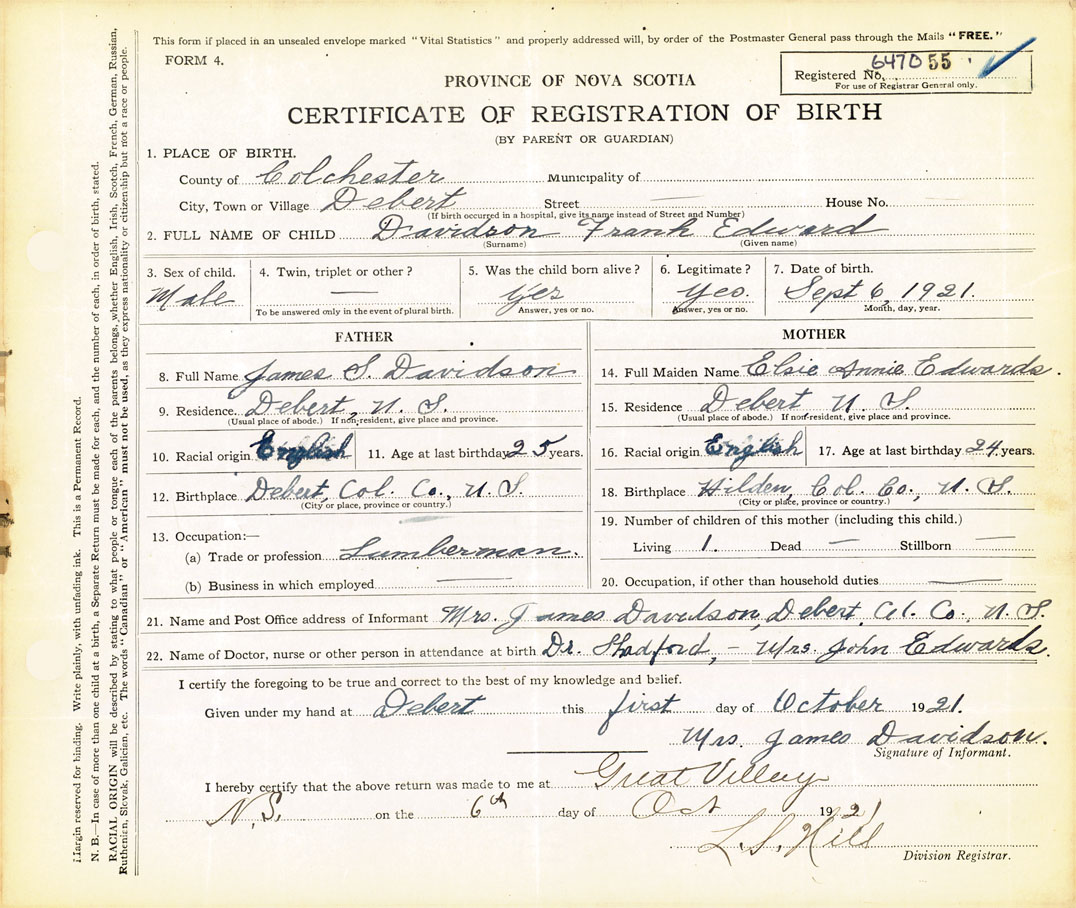 This form if placed in an unsealed envelope marked "Vital Statistics" and properly addressed will, by order of the Postmaster General pass through the Mails "FREE."
FORM 4.
Registered No. 647055
For use of Registrar General only.
PROVINCE OF NOVA SCOTIA
CERTIFICATE OF REGISTRATION OF BIRTH
(BY PARENT OR GUARDIAN)
1. PLACE OF BIRTH.
County of Colchester Municipality of
City, Town or Village Debert Street — House No.
(If birth occurred in a hospital, give its name instead of Street and Number)
2. FULL NAME OF CHILD Davidson Frank Edward
(Surname) (Given name)
3. Sex of child. 4. Twin, triplet or other? 5. Was the child born alive? 6. Legitimate? 7. Date of birth.
Male — Yes Yes. Sept 6, 1921.
To be answered only in the event of plural birth. Answer, yes or no. Answer, yes or no. Month, day, year.
FATHER
8. Full Name James S. Davidson
9. Residence. Debert, N. S.
(Usual place of abode.) If non-resident, give place and province.
10. Racial origin English 11. Age at last birthday 25 years.
12. Birthplace Debert, Col. Co., N. S.
(City or place, province or country.)
13. Occupation:—
(a) Trade or profession Lumberman.
(b) Business in which employed —
MOTHER
14. Full Maiden Name Elsie Annie Edwards.
15. Residence Debert N. S.
(Usual place of abode.) If non-resident, give place and province.
16. Racial origin English 17. Age at last birthday 24 years.
18. Birthplace Hilden, Col. Co., N. S.
(City or place, province or country.)
19. Number of children of this mother (including this child.)
Living 1. Dead — Stillborn —
20. Occupation, if other than household duties —
21. Name and Post Office address of Informant Mrs. James Davidson, Debert, Col. Co., N. S.
22. Name of Doctor, nurse or other person in attendance at birth Dr. Shadford, – Mrs. John Edwards.
I certify the foregoing to be true and correct to the best of my knowledge and belief.
Given under my hand at Debert this first day of October 1921.
Mrs. James Davidson.
Signature of Informant.
I hereby certify that the above return was made to me at Great Village
N.S. on the 6th day of Oct 1921
L. S. Hill
Division Registrar.
Margin reserved for binding. Write plainly, with unfading ink. This is a Permanent Record.
N. B.—In case of more than one child at a birth, a Separate Return must be made for each, and the number of each, in order of birth, stated.
RACIAL ORIGIN will be described by stating to what people or tongue each of the parents belongs, whether English, Irish, Scotch, French, German, Russian,
Ruthenian, Slovak, Galician, etc. The words "Canadian" or "American" must not be used, as they express nationality or citizenship but not a race or people.